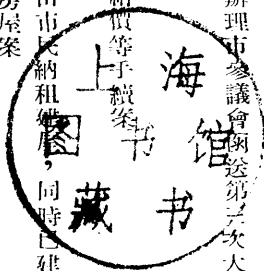 辦理市參議會函送第次大
價等手續案
市民納租，同時已建
屋案
上海
图书馆
藏书